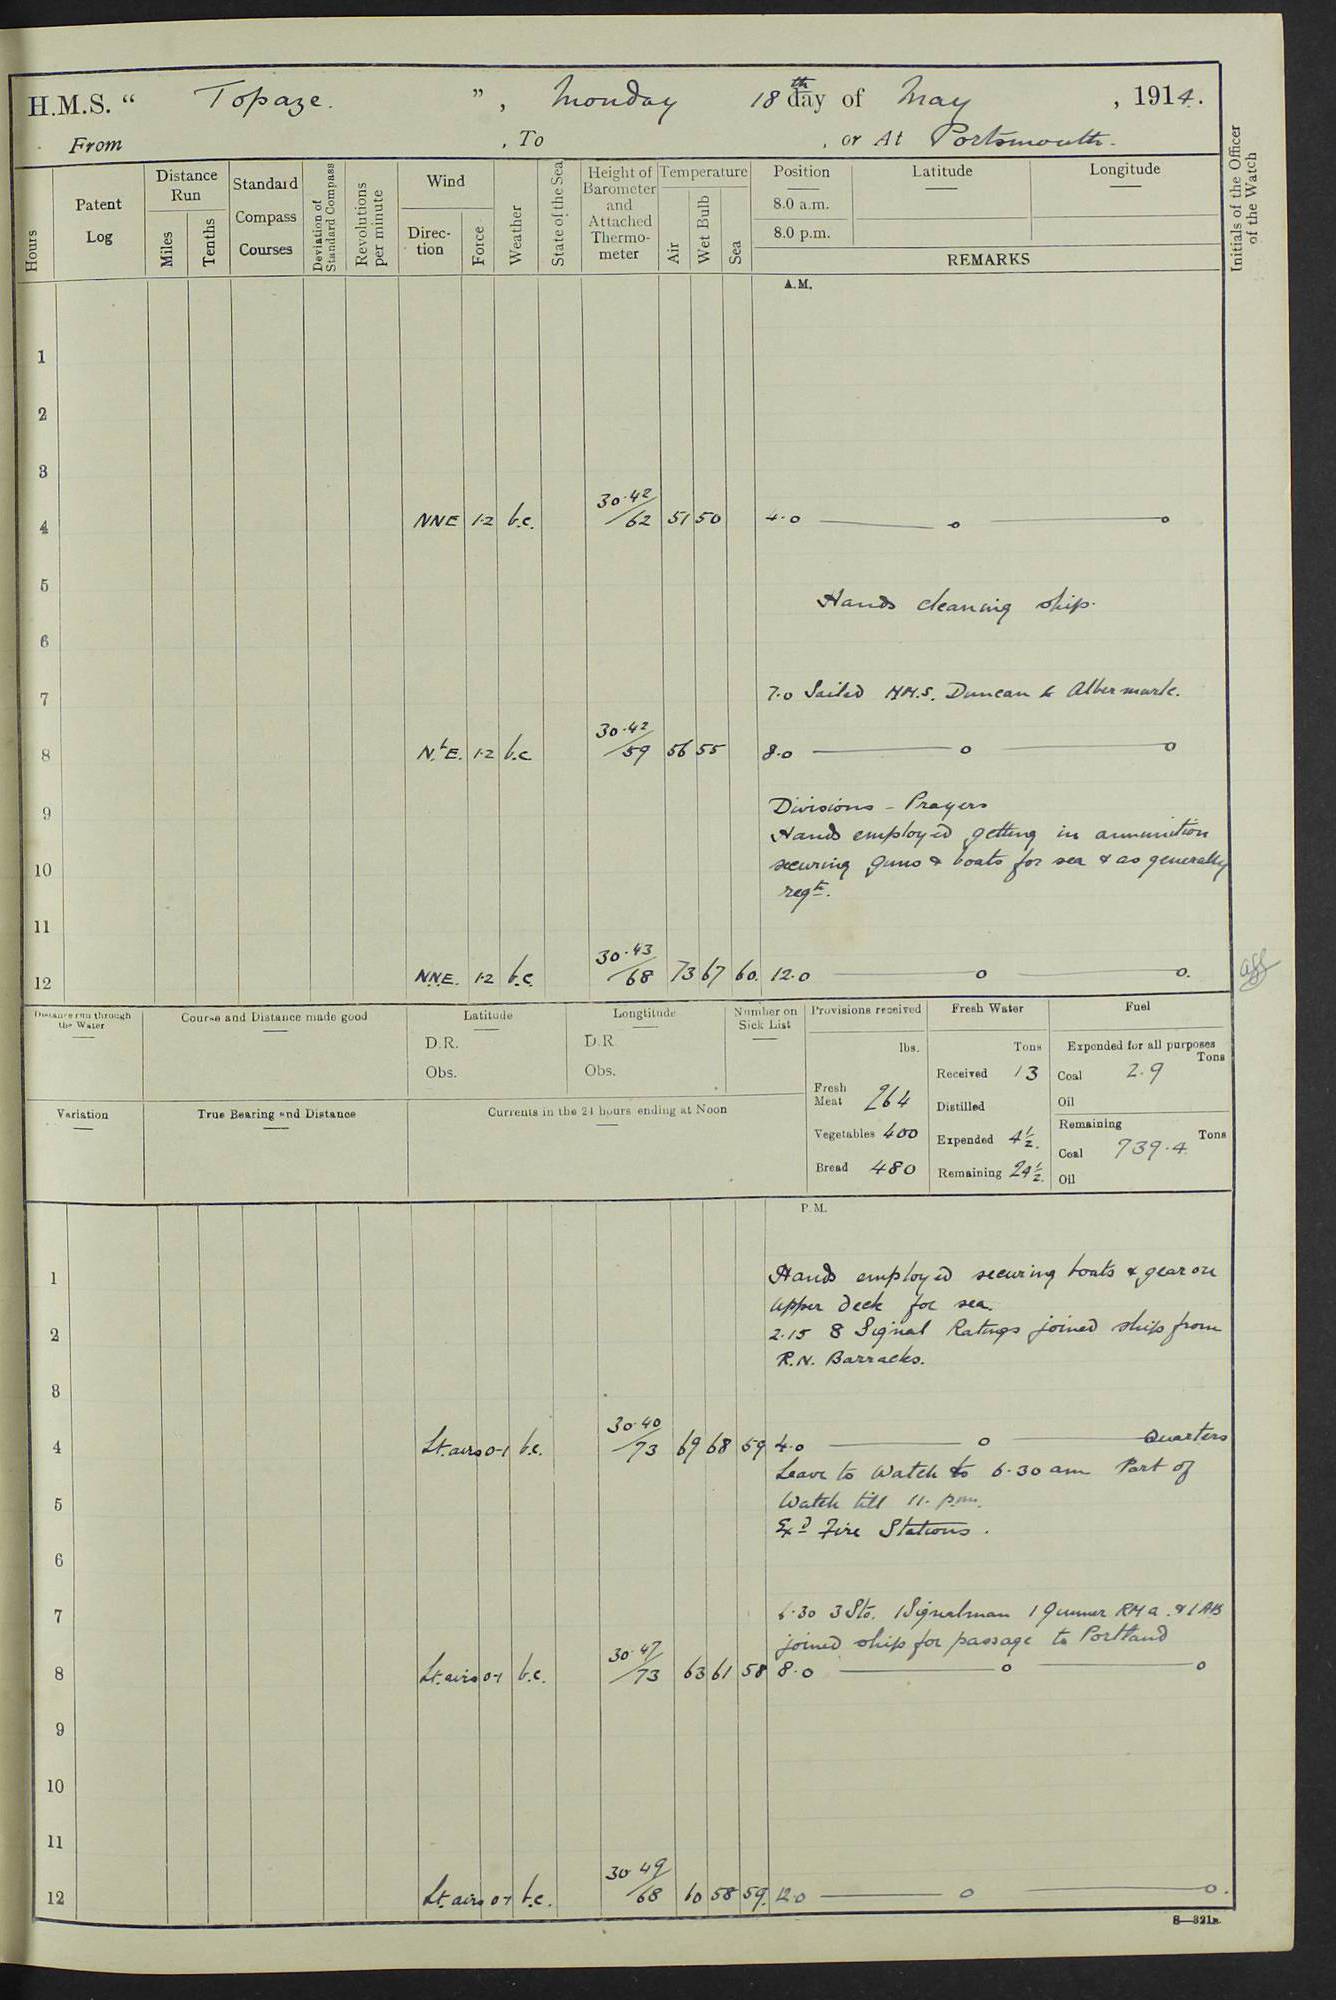 H.M.S. “ Topaze. ” , Monday 18th day of May , 1914.
From , To , or At Portsmouth.
Hours
Patent Log
Distance Run
Miles
Tenths
Standard Compass Courses
Deviation of Standard Compass
Revolutions per minute
Wind
Direc-tion
Force
Weather
State of the Sea
Height of Barometer and Attached Thermo-meter
Temperature
Air
Wet Bulb
Sea
Position
8.0 a.m.
8.0 p.m.
Latitude
Longitude
REMARKS
Initials of the Officer of the Watch
A.M.
1
2
3
30.42
4 NNE 1-2 b.c. /62 51 50 4.0 — o — o
5
Hands cleaning ship.
6
7 7.0 Sailed H.M.S. Duncan & Albermarle.
30.42
8 NbE. 1-2 b.c /59 56 55 8.0 — o — o
9 Divisions - Prayers
Hands employed getting in ammunition
10 securing guns & boats for sea & as generally
reqte.
11
30.43
12 N.N.E. 1-2 b.c. /68 73 67 60. 12.0 — o — o.
Distance run through the Water
Course and Distance made good
Latitude
D.R.
Obs.
Longtitude
D.R
Obs.
Number on Sick List
Provisions received
lbs.
Fresh Meat 264
Vegetables 400
Bread 480
Fresh Water
Tons
Received 13
Distilled
Expended 4½.
Remaining 24½.
Fuel
Expended for all purposes
Tons
Coal 2.9
Oil
Remaining
Tons
Coal 739.4
Oil
Variation
True Bearing and Distance
Currents in the 24 hours ending at Noon
P.M.
1 Hands employed securing boats & gear on
upper deck for sea.
2 2.15 8 Signal Ratings joined ship from
R.N. Barracks.
3
30.40
4 Lt. airs 0-1 b.c. /73 69 68 59 4.0 — o — Quarters
Leave to Watch to 6.30 am Part of
5 Watch till 11. p.m.
Exd Fire Stations.
6
7 6.30 3 Sto. 1 Signalman 1 Gunner RMA. & 1 AB
joined ship for passage to Portland
30.47
8 Lt. airs 0-1 b.c. /73 63 61 58 8.0 — o — o
9
10
11
30 49
12 Lt. airs 0-1 b.c. /68 60 58 59. 12.0 — o — o.
S—321B.